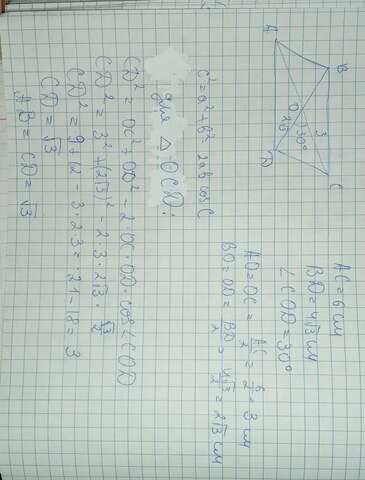 A B
O 3
2√3 30°
D C
AC = 6 см
BD = 4√3 см
∠COD = 30°
AO = OC = AC/2 = 6/2 = 3 см
BO = OD = BD/2 = 4√3/2 = 2√3 см
c² = a² + b² 2ab cos C
для △ OCD:
CD² = OC² + OD² - 2 · OC · OD · cos∠COD
CD² = 3² + (2√3)² - 2 · 3 · 2√3 · √3/2
CD² = 9 + 12 - 3 · 2 · 3 = 21 - 18 = 3
CD = √3
AB = CD = √3